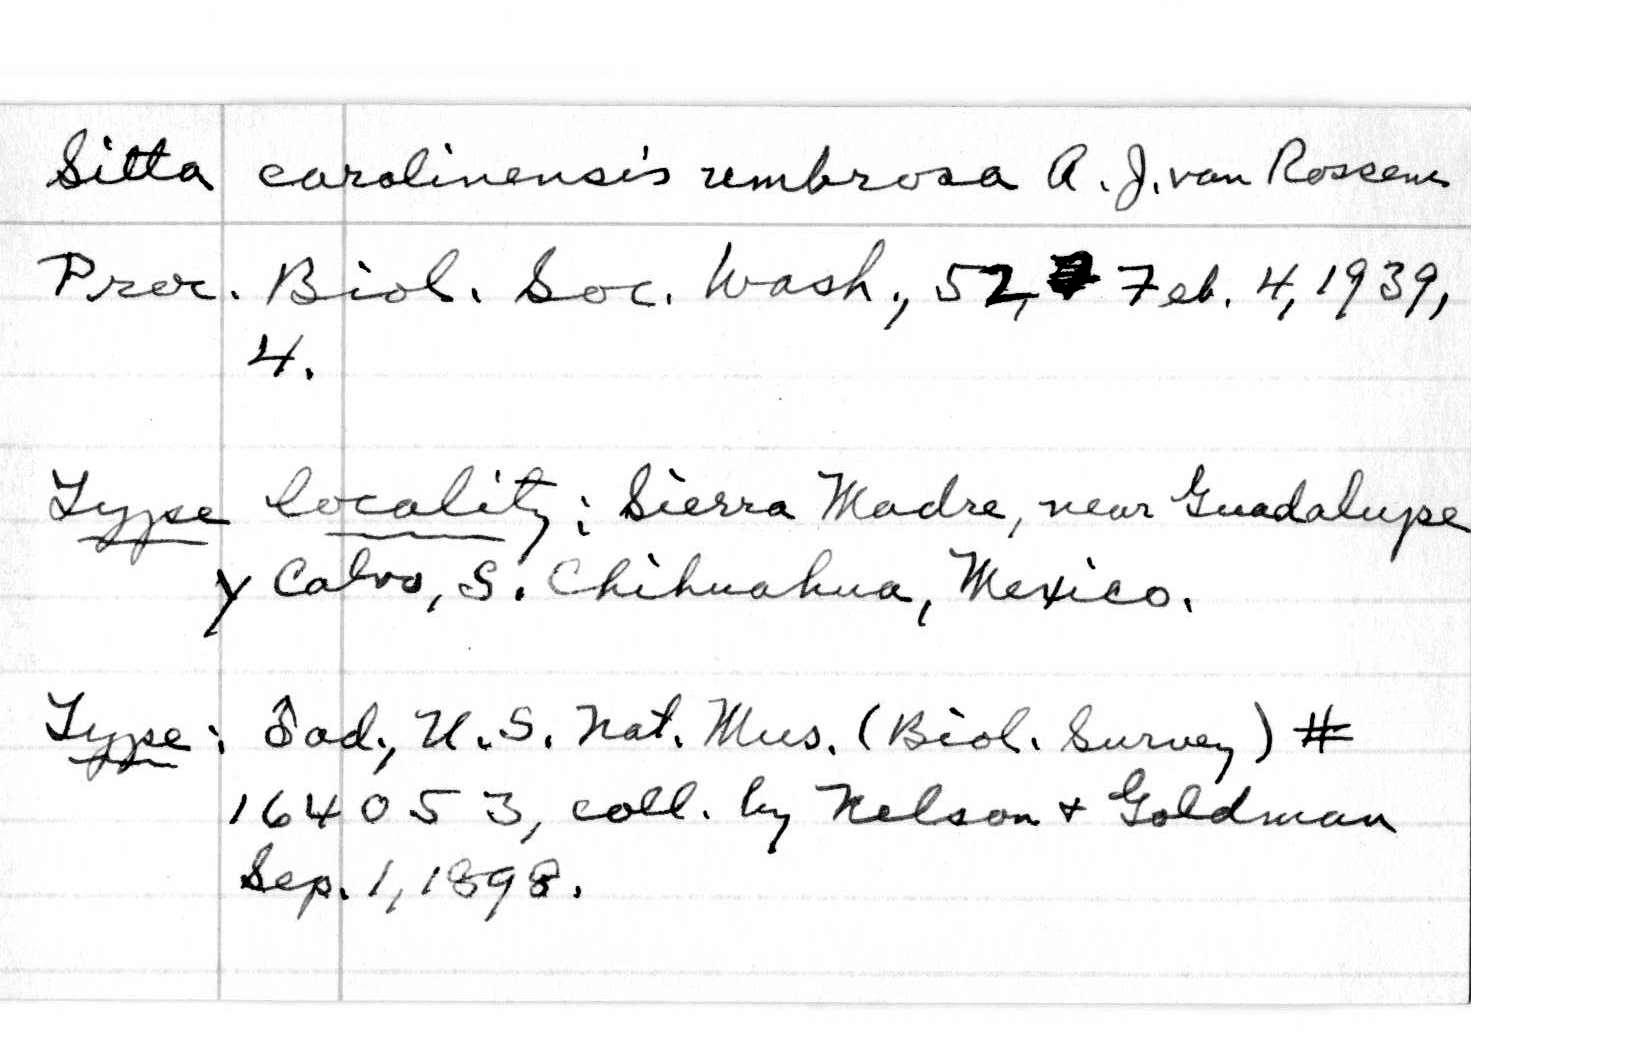 Sitta carolinensis umbrosa A. J. van Rossem
Proc. Biol. Soc. Wash., 52, Feb. 4, 1939,
4.
Type locality: Sierra Madre, near Guadalupe
y Calvo, S. Chihuahua, Mexico.
Type: ♂ ad., U.S. Nat. Mus. (Biol. Survey) #
164053, coll. by Nelson + Goldman
Sep. 1, 1898.